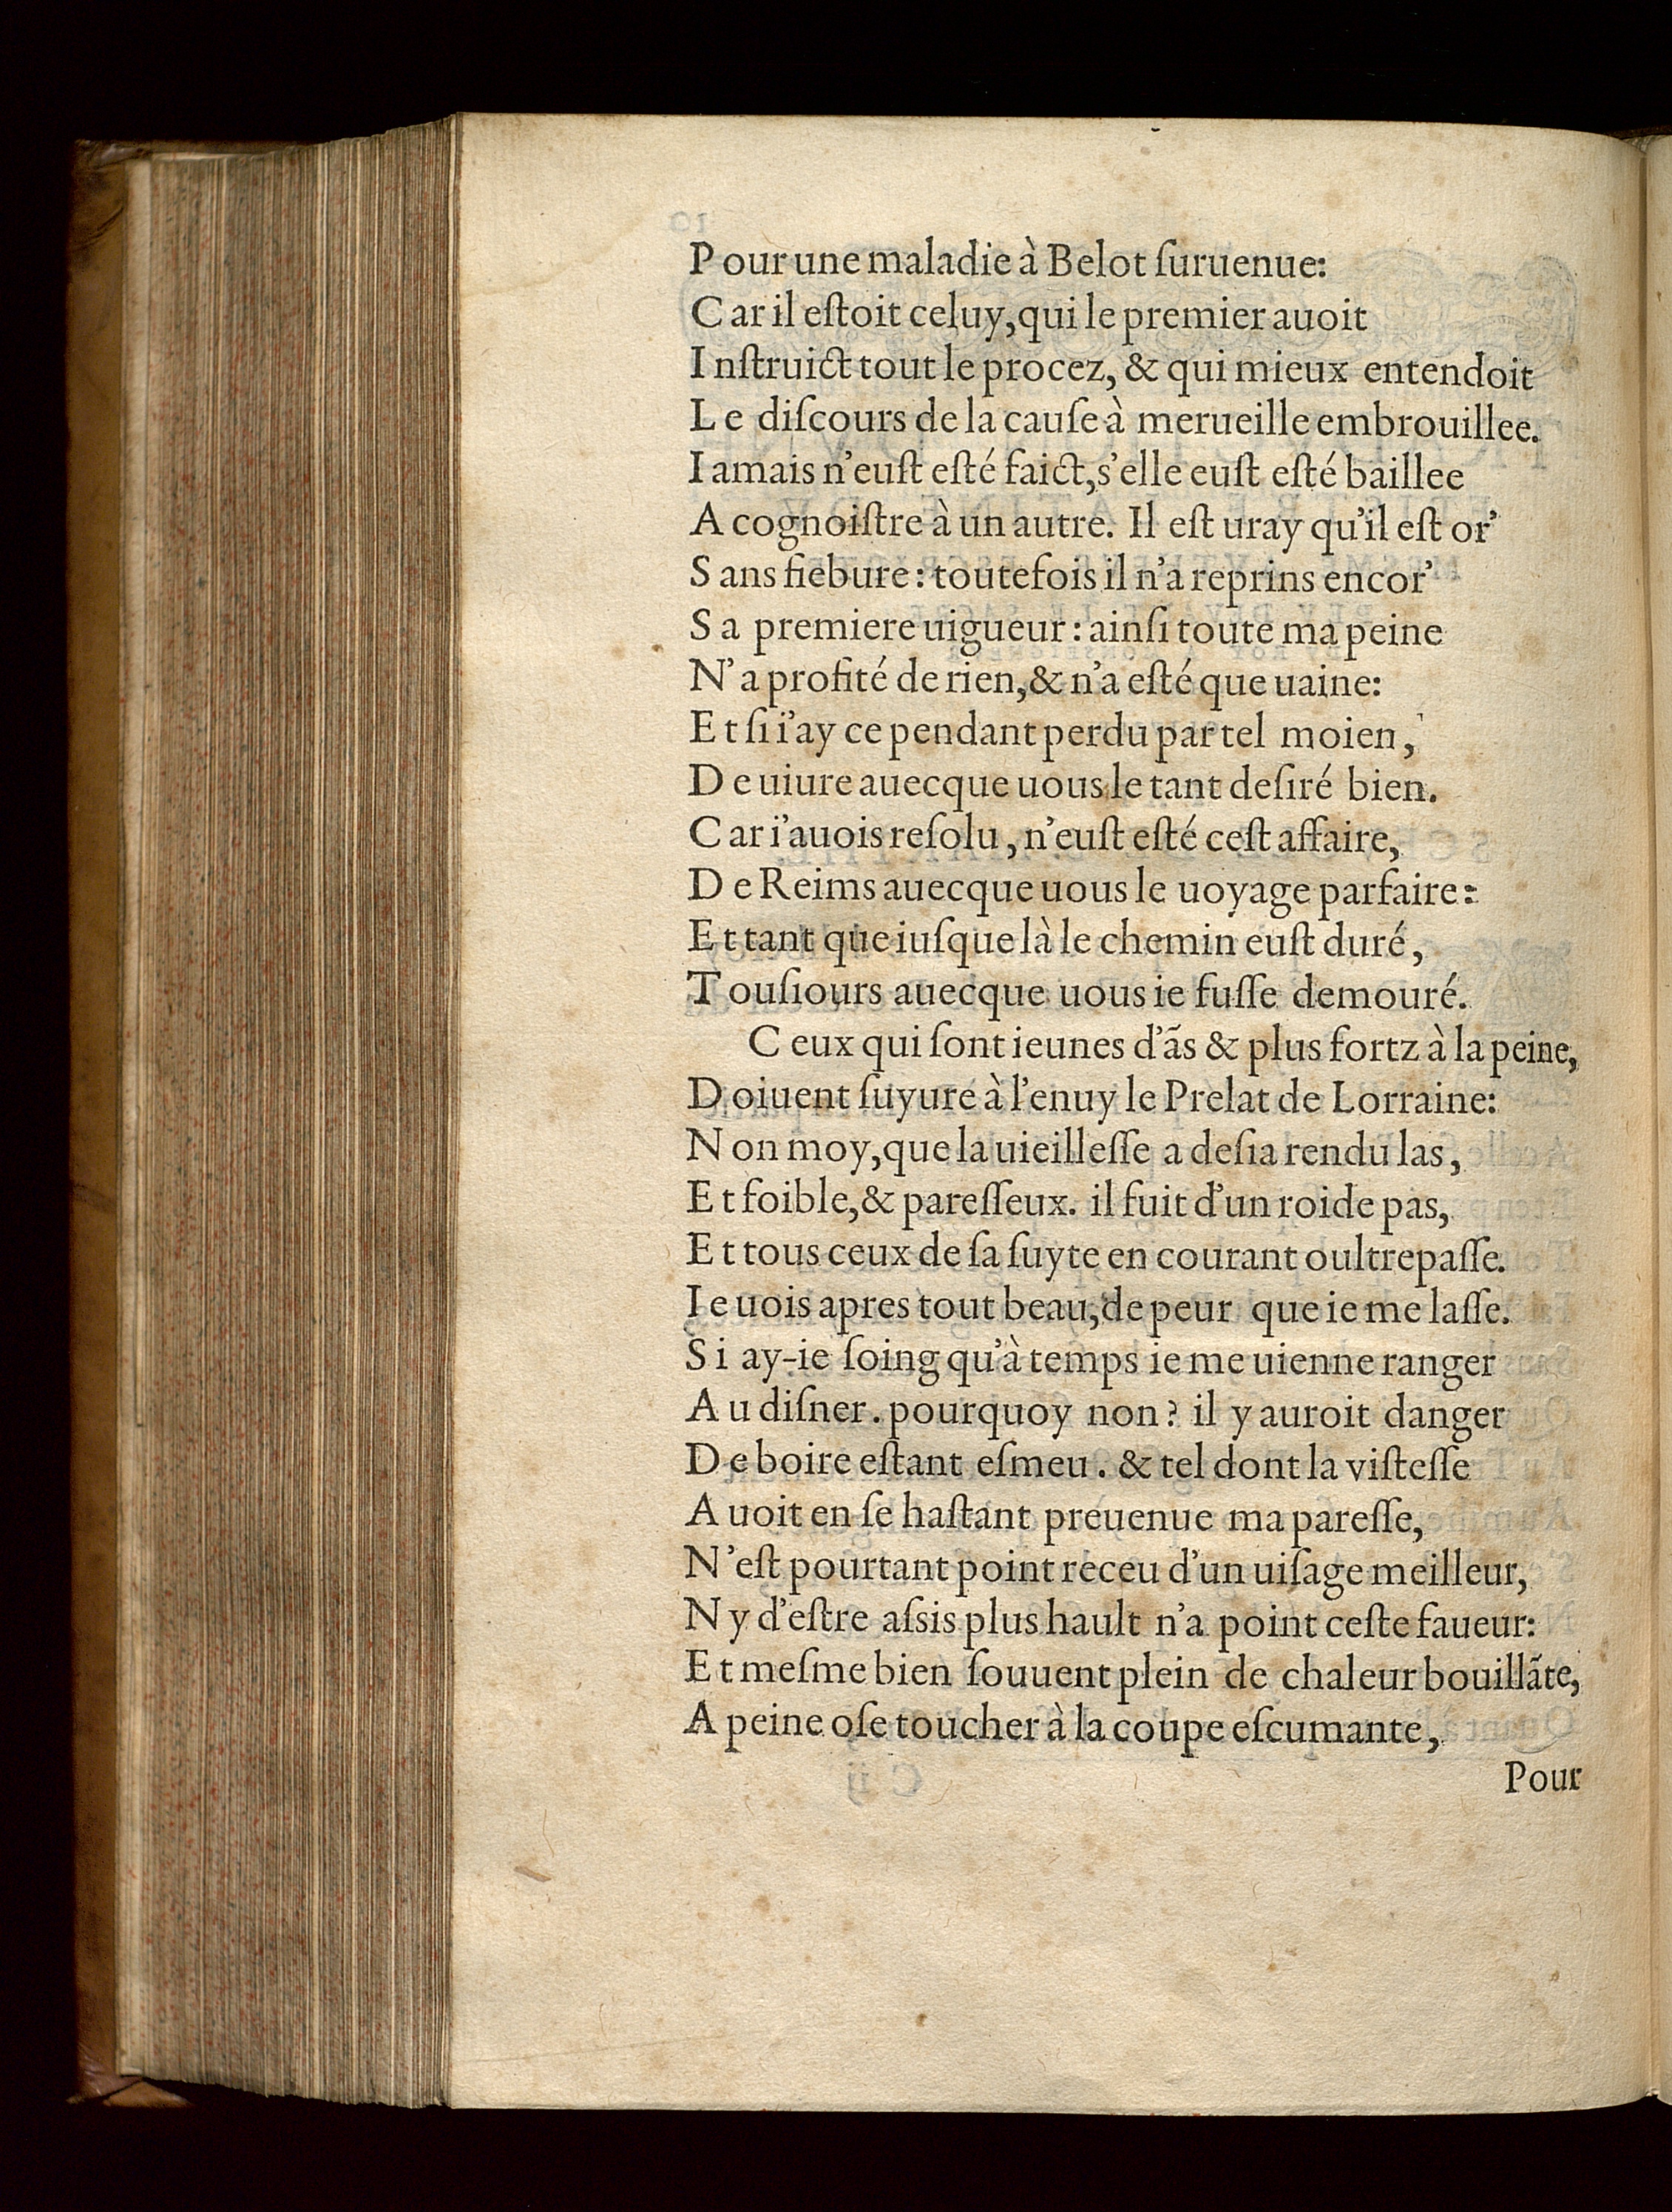 Pour une maladie à Belot ſuruenue:
Car il eſtoit celuy, qui le premier auoit
Inſtruict tout le procez, & qui mieux entendoit
Le diſcours de la cauſe à merueille embrouillee.
Iamais n'euſt eſté faict, s'elle euſt eſté baillee
A cognoiſtre à un autre. Il eſt uray qu'il eſt or'
Sans fiebure: toutefois il n'a reprins encor'
Sa premiere uigueur: ainſi toute ma peine
N'a profité de rien, & n'a eſté que uaine:
Et ſi i'ay ce pendant perdu par tel moien,
De uiure auecque uous le tant deſiré bien.
Car i'auois reſolu, n'euſt eſté ceſt affaire,
De Reims auecque uous le uoyage parfaire:
Et tant que iuſque là le chemin euſt duré,
Touſiours auecque uous ie fuſſe demouré.
Ceux qui ſont ieunes d'ãs & plus fortz à la peine,
Doiuent ſuyure à l'enuy le Prelat de Lorraine:
Non moy, que la uieilleſſe a deſia rendu las,
Et foible, & pareſſeux. il fuit d'un roide pas,
Et tous ceux de ſa ſuyte en courant oultrepaſſe.
Ie uois apres tout beau, de peur que ie me laſſe.
Si ay-ie ſoing qu'à temps ie me uienne ranger
Au diſner. pourquoy non? il y auroit danger
De boire eſtant eſmeu. & tel dont la viſteſſe
Auoit en ſe haſtant preuenue ma pareſſe,
N'eſt pourtant point receu d'un uiſage meilleur,
Ny d'eſtre aſsis plus hault n'a point ceſte faueur:
Et meſme bien ſouuent plein de chaleur bouillãte,
A peine oſe toucher à la coupe eſcumante,
Pour